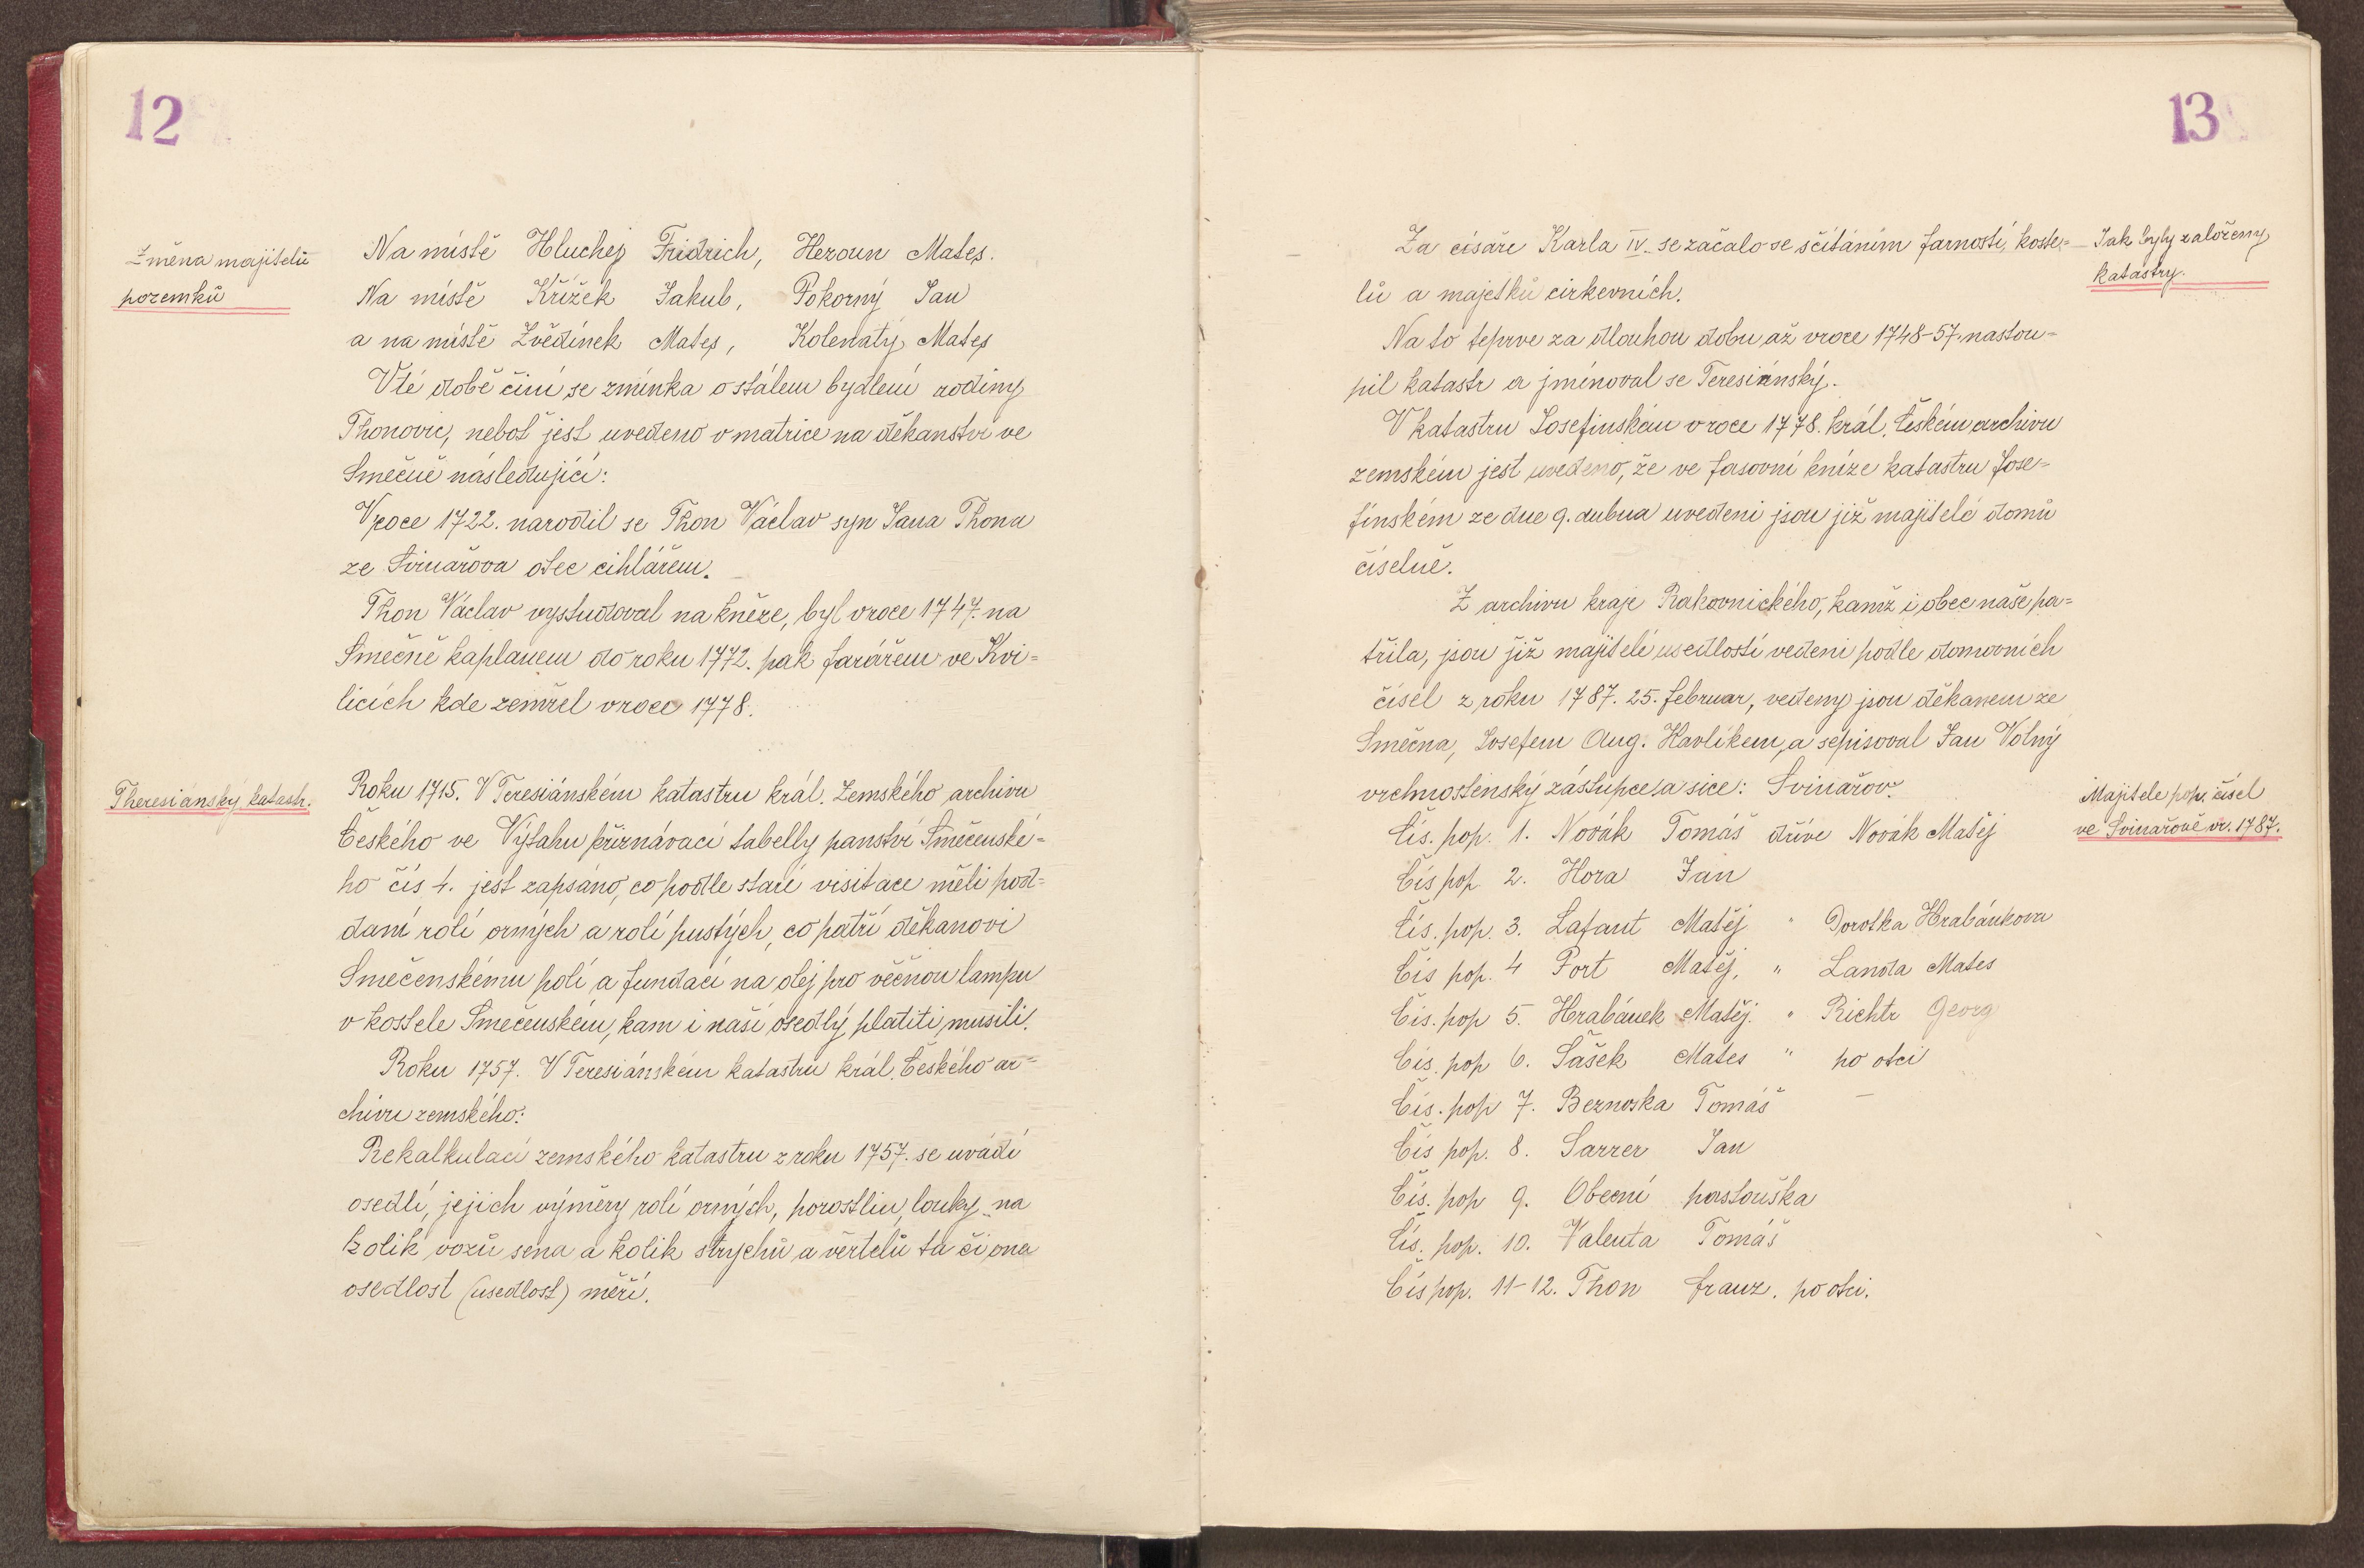 12
Změna majitelů
pozemků
Na místě Hluchej Fridrich, Heroun Matej.
Na místě Křížek Jakub, Pokorný Jan
a na místě Zvědínek Matej, Kolenatý Matej
V té době činí se zmínka o stálem bydlení rodiny
Thonovic, neboť jest uvedeno v matrice na děkanství ve
Smečně následující:
V roce 1722. narodil se Thon Václav syn Jana Thona
ze Svinařova otec cihlářem.
Thon Václav vystudoval na kněze, byl v roce 1747. na
Smečně kaplanem do roku 1772. pak farářem ve Kvi=
licích kde zemřel v roce 1778.
Theresiánský katastr.
Roku 1715. V Teresiánském katastru král. Zemského archivu
Českého ve Výtahu přiznávací tabelly panství Smečenské=
ho čís 4. jest zapsáno, co podle staré visitace měli pod=
daní rolí orných a rolí pustých, co patří děkanovi
Smečenskému polí a fundací na olej pro věčnou lampu
v kostele Smečenském, kam i naší osedlý platiti musili.
Roku 1757. V Teresiánském katastru král. Českého ar=
chivu zemského:
Rekalkulací zemského katastru z roku 1757. se uvádí
osedlí, jejich výměry rolí orných, porostlin, louky na
kolik vozů sena a kolik strychů a věrtelů ta či ona
osedlost (usedlost) měří.
13
Za císaře Karla IV. se začalo se sčítáním farností, koste=
lů a majetků cirkevních.
Jak byly založeny
katastry.
Na to teprve za dlouhou dobu až v roce 1748-57. nastou=
pil katastr a jmínoval se Teresiánský.
V katastru Josefinském v roce 1778. král. Českém archivu
zemském jest uvedeno, že ve fasovní knize katastru Jose=
fínském ze dne 9. dubna uvedeni jsou již majitelé domů
číselně.
Z archivu kraje Rakovnického, kamž i obec naše pa=
třila, jsou již majitelé usedlostí vedeni podle domovních
čísel z roku 1787. 25. februar, vedeny jsou děkanem ze
Smečna, Josefem Aug. Havlíkem, a sepisoval Jan Volný
vrchnostenský zástupce, a sice: Svinařov.
Majitele pop. čísel
ve Svinařově v r. 1787.
Čís. pop. 1. Novák Tomáš dříve Novák Matěj
Čís pop. 2. Hora Jan
Čís. pop. 3. Lafant Matěj " Dorotka Hrabánkova
Čís pop. 4 Port Matěj, " Landa Mates
Čís. pop 5. Hrabánek Matěj. " Richtr Georg
Čís. pop 6. Šašek Mates " po otci
Čís. pop 7. Beznoska Tomáš —
Čís pop. 8. Sarrer Jan
Čís. pop 9. Obecní pastouška
Čís. pop. 10. Valenta Tomáš
Čís pop. 11-12. Thon franz. po otci.